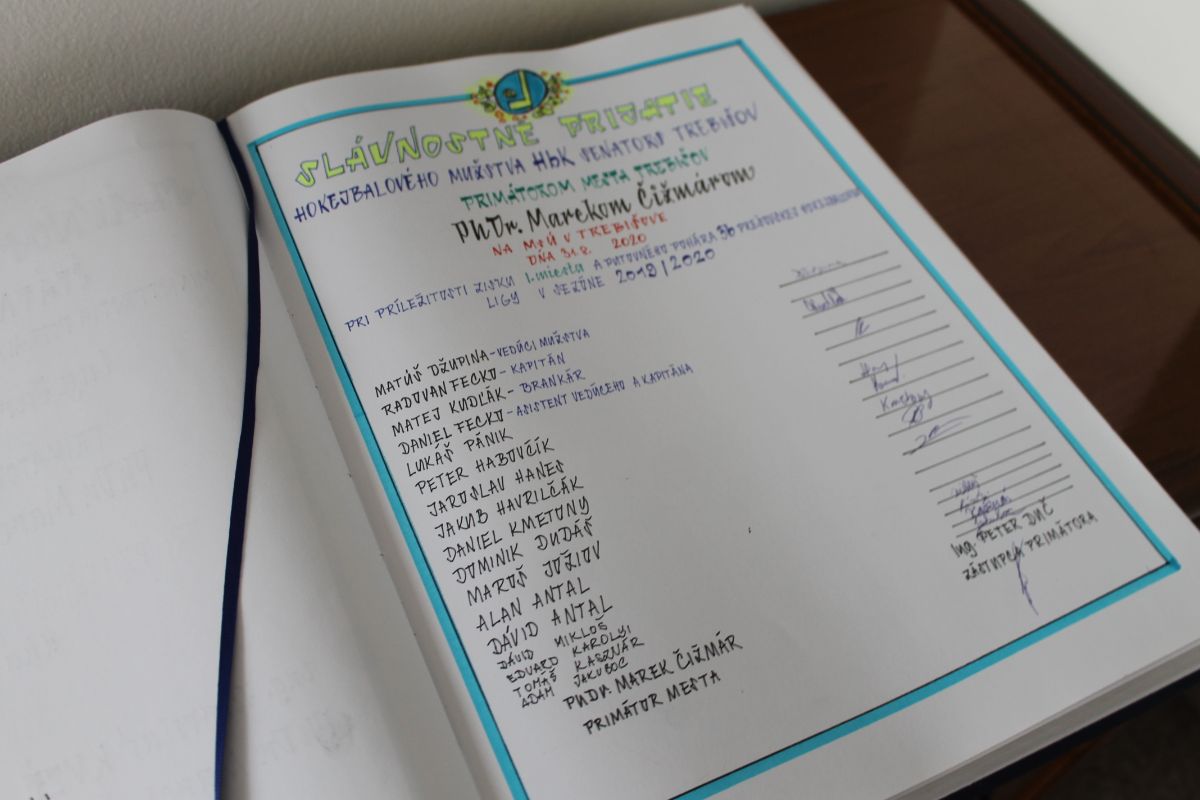 SLÁVNOSTNÉ PRIJATIE
HOKEJBALOVÉHO MUŽSTVA HbK SENATORS TREBIŠOV
PRIMÁTOROM MESTA TREBIŠOV
PhDr. Marekom Čižmárom
NA MsÚ V TREBIŠOVE
DŇA 31.8. 2020
PRI PRÍLEŽITOSTI ZISKU 1. miesta A PUTOVNÉHO POHÁRA 3b PREŠOVSKEJ HOKEJBALOVEJ
LIGY V SEZÓNE 2019/2020
MATÚŠ DŽUPINA - VEDÚCI MUŽSTVA
RADOVAN FECKO - KAPITÁN
MATEJ KUDĽÁK - BRANKÁR
DANIEL FECKO - ASISTENT VEDÚCEHO A KAPITÁNA
LUKÁŠ PÁNIK
PETER HABOVČÍK
JAROSLAV HANES
JAKUB HAVRILČÁK
DANIEL KMETONY
DOMINIK DUDÁŠ
MAROŠ JOŽIOV
ALAN ANTAL
DÁVID ANTAL
DÁVID MIKLOŠ
EDUARD KAROLYI
TOMÁŠ KASZNÁR
ADAM JAKUBOC
PhDr. MAREK ČIŽMÁR
PRIMÁTOR MESTA
Kmetony
Ing. PETER DUČ
ZÁSTUPCA PRIMÁTORA